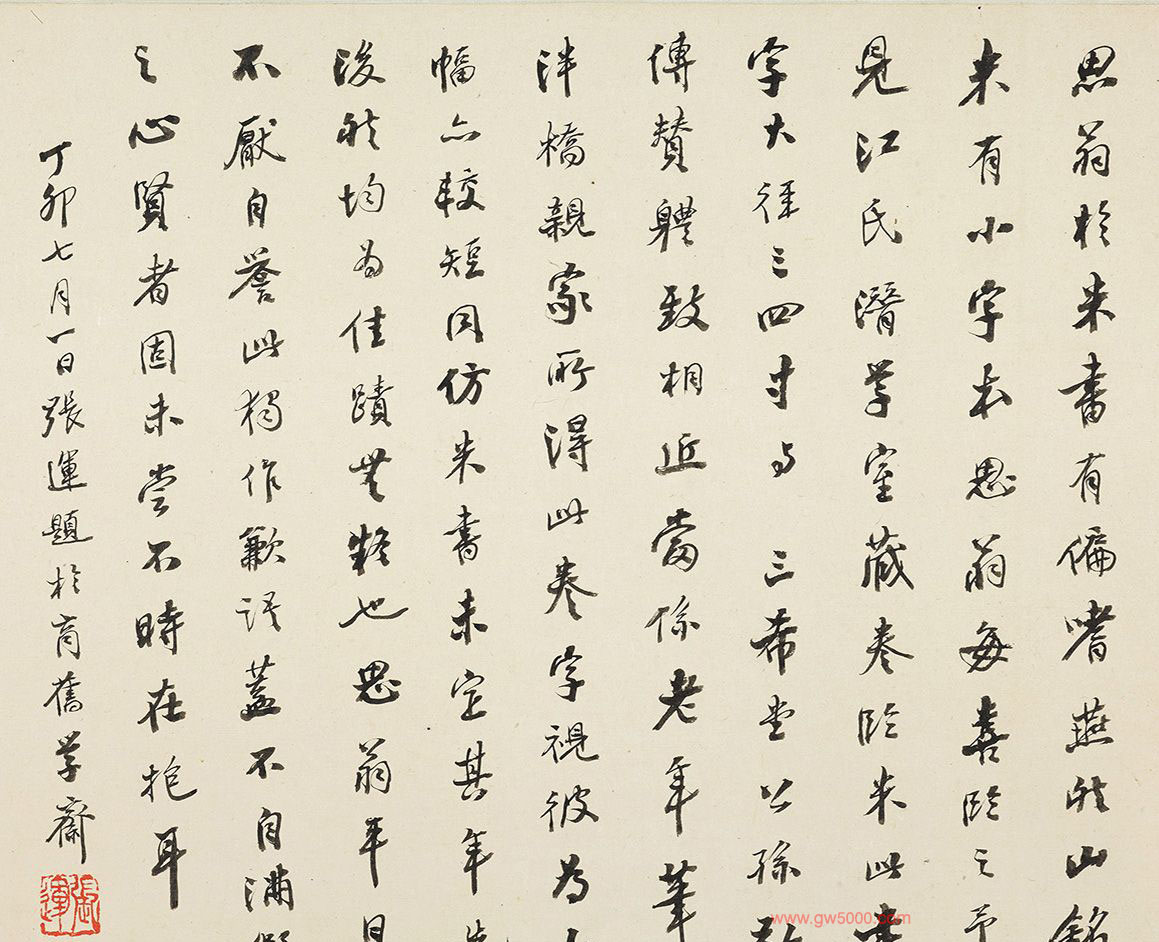 思翁於米書有偏嗜燕然山銘
米有小字本思翁每喜臨之予
見江氏潛學室藏卷臨米此書
字大徑三四寸與 三希堂公孫弘
傳贊體致相近當係老年筆
泮橋親家所得此卷字視彼為
幅亦較短同仿米書未定其年先
後然均為佳蹟無疑也思翁平日
不厭自譽此獨作歉語蓋不自滿假
之心賢者固未嘗不時在抱耳
丁卯七月一日張運題於商舊學齋
張運
www.gw5000.com